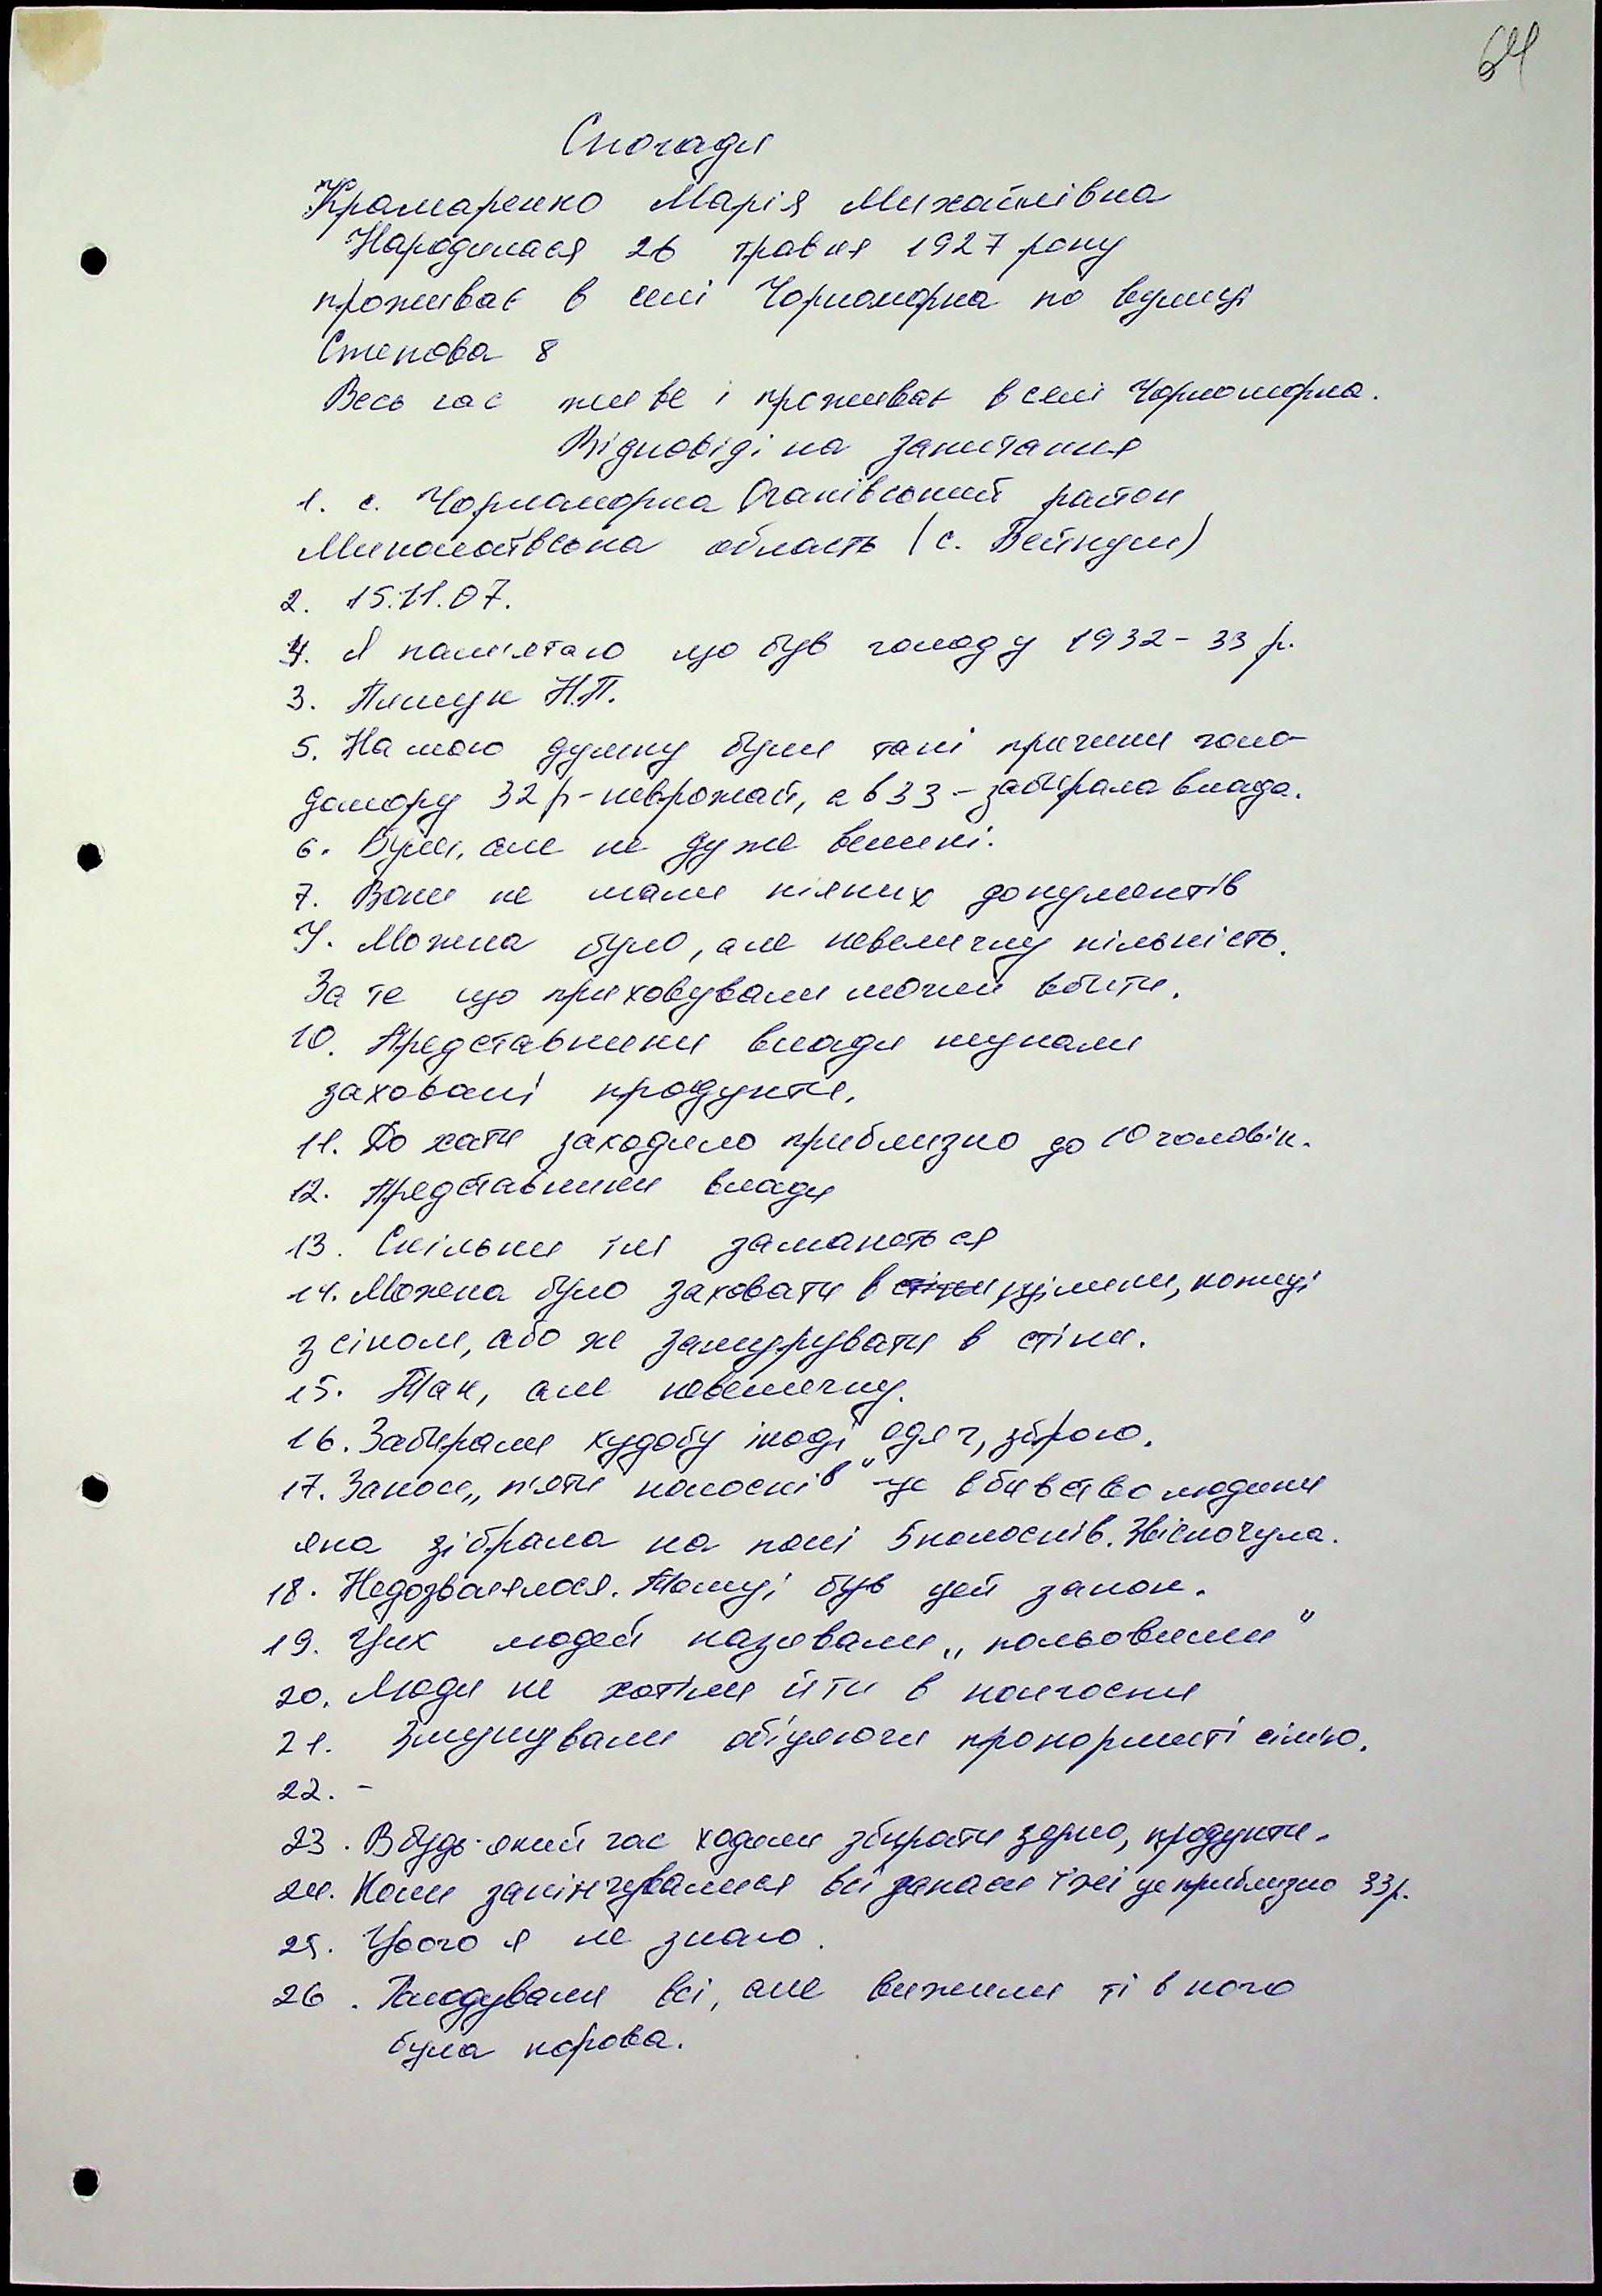 64
Спогади
Крамаренко Марія Михайлівна
Народилася 26 травня 1927 року
проживає в селі Чорноморка по вулиці
Степова 8
Весь час живе і проживає в селі Чорноморка.
Відповіді на запитання
1. с. Чорноморка Очаківський район
Миколаївська область (с. Бейкуш)
2. 15.11.07.
4. Я пам'ятаю що був голод у 1932-33 р.
3. Н.П.
5. На мою думку були такі причини голо-
домору 32 р - неврожай, а в 33 - забирала влада.
6. Були, але не дуже великі.
7. Вони не мали ніяких документів
9. Можна було, але невеличку кількість.
За те що приховували могли вбити.
10. Представники влади шукали
заховані продукти.
11. До хати заходило приблизно до 10 чоловік.
12. Представники влади
13. Скільки їм заманеться
14. Можна було заховати в стіни щілини, копиці
з сіном, або же замурувати в стіни.
15. Так, але невеличку.
16. Забирали худобу іноді одяг, зброю.
17. Закон „п'яти колосків" - це вбивство людини
яка зібрала на полі 5 колосків. Звісно чула.
18. Недозволялося. Тому і був цей закон.
19. Цих людей називали „польовими"
20. Люди не хотіли йти в колгоспи
21. Змушували обіцяючи прокормиті сім'ю.
22. -
23. В будь-який час ходили збирати зерно, продукти.
24. Коли закінчувалися всі запаси їжі це приблизно 33р.
25. Цього я не знаю.
26. Голодували всі, але вижили ті в кого
була корова.